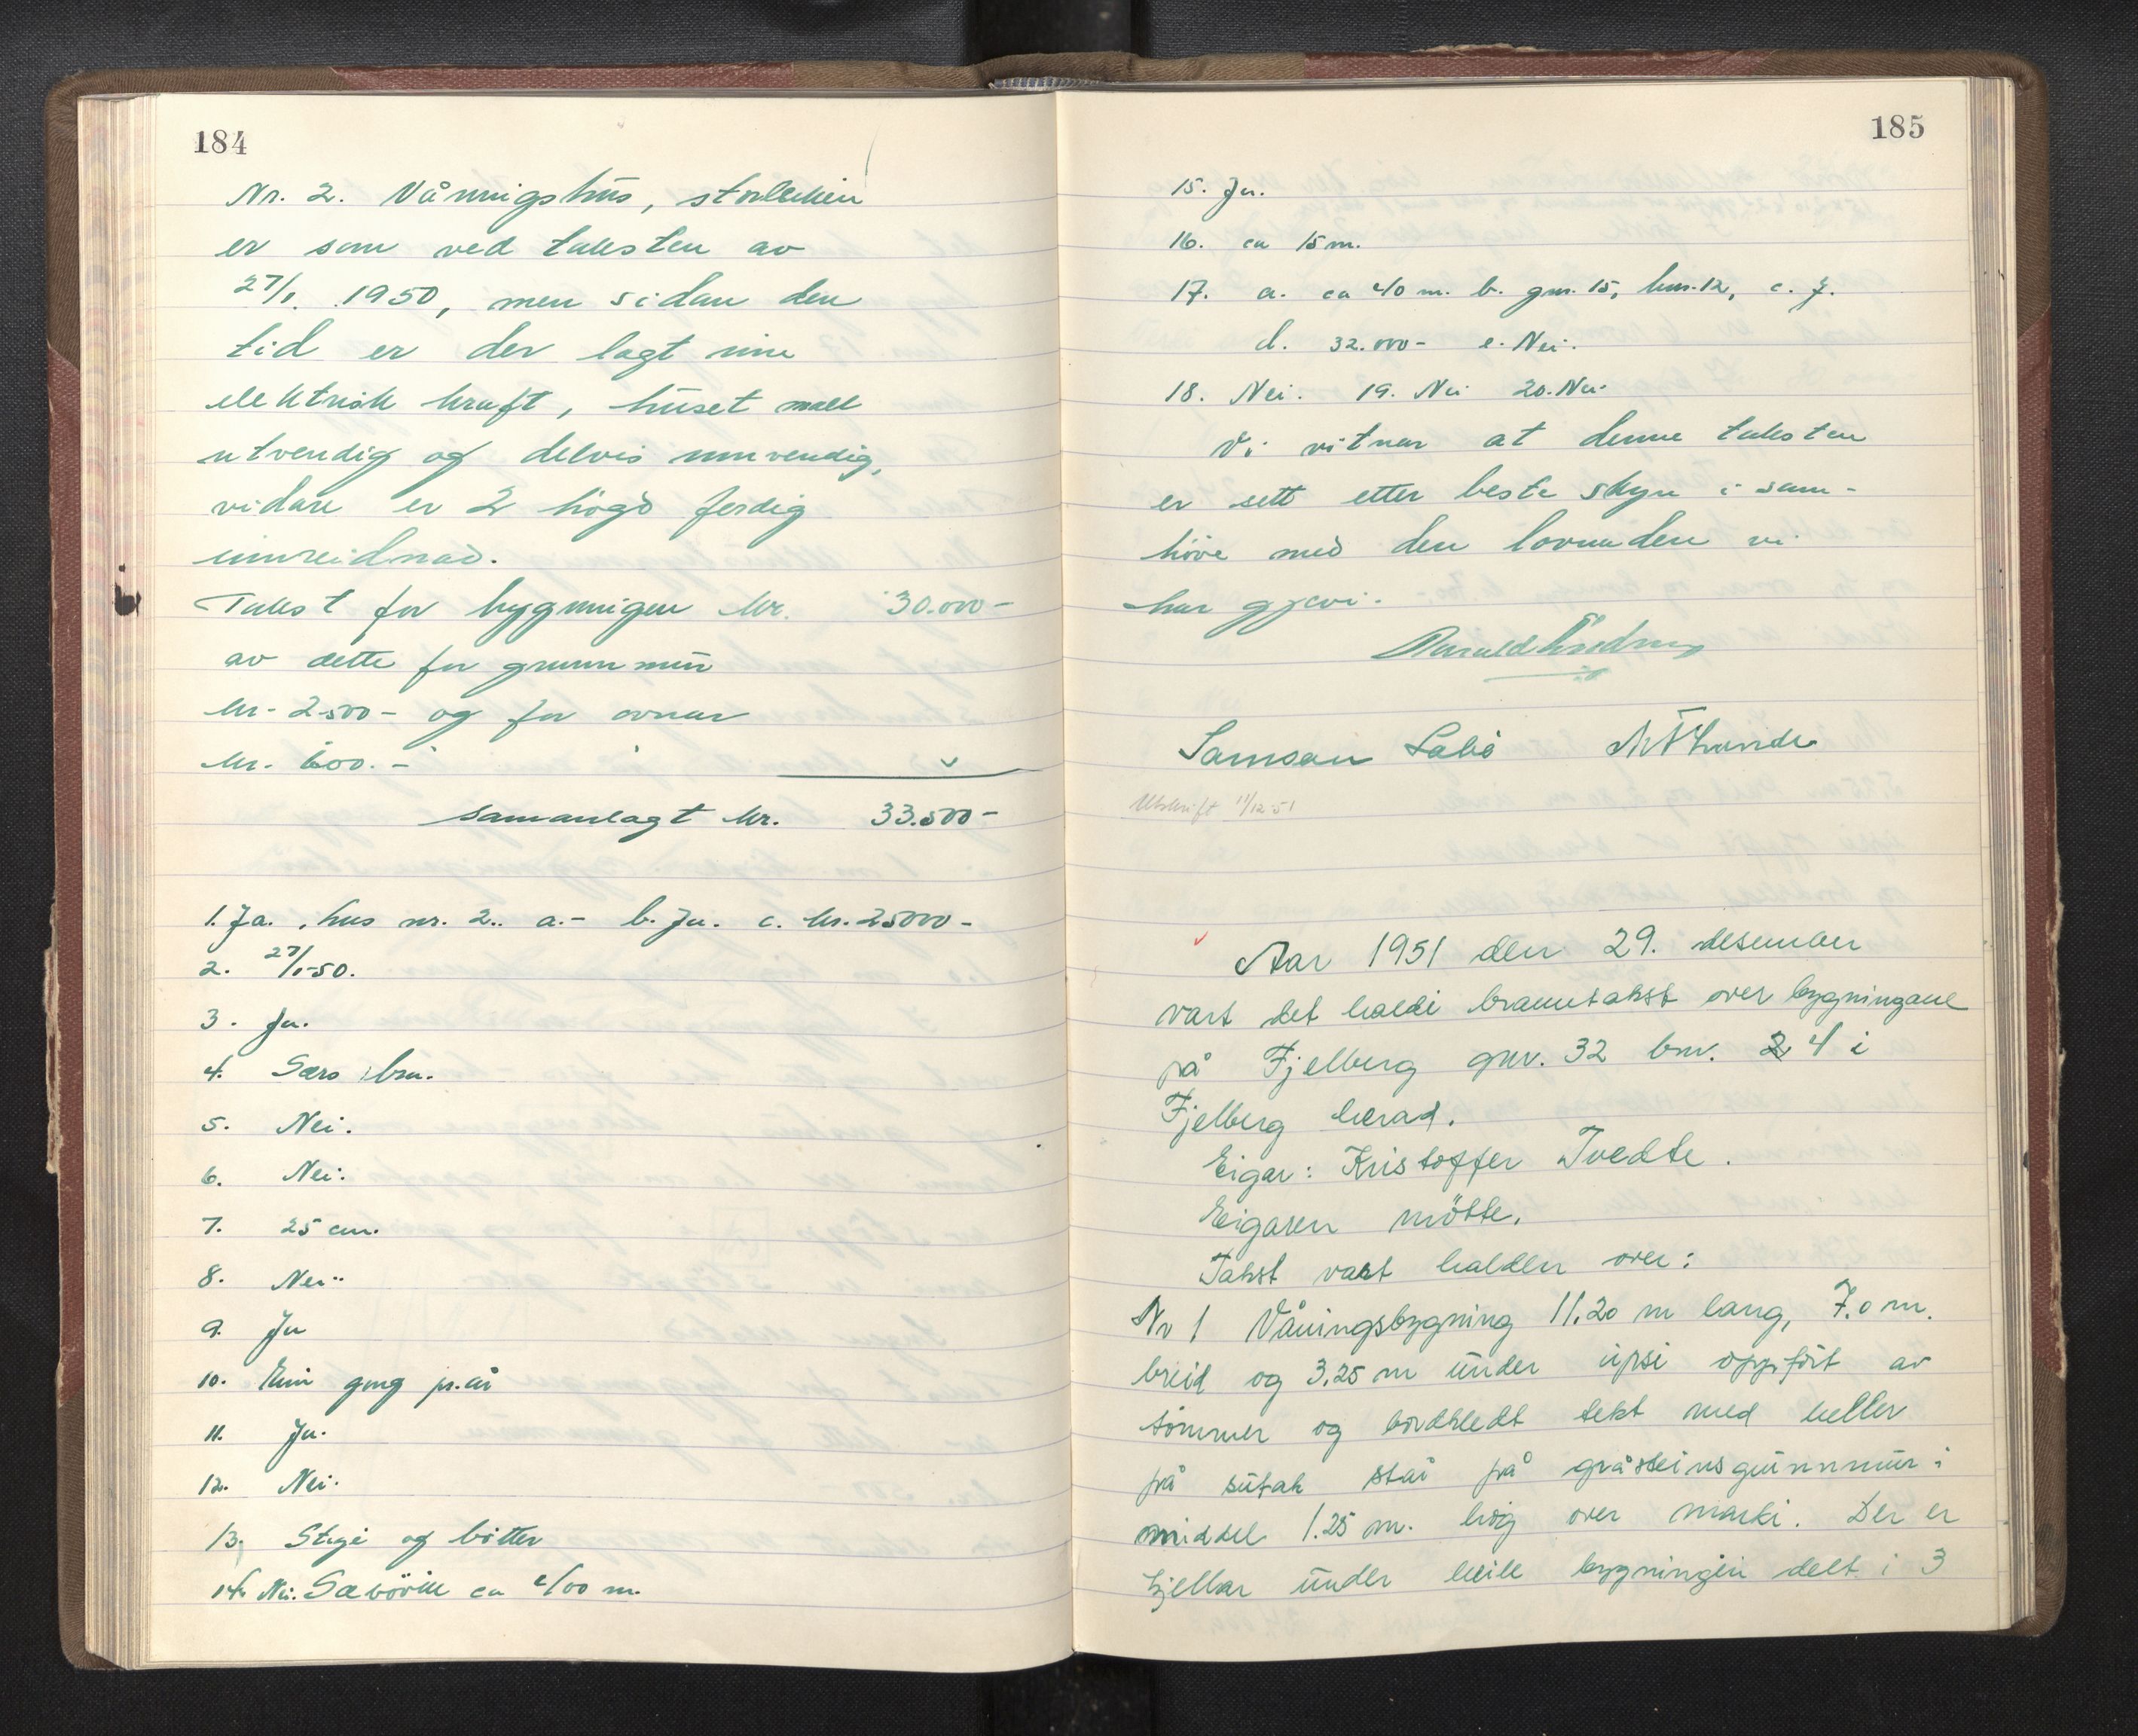 184
Nr. 2. Vånnigshus, storleiken
er som ved taksten av
27/1. 1950, men sidan den
tid er der lagt inn
elektrisk kraft, huset mall
utvendig og delvis innvendig,
vidare er 2 högd ferdig
innreidnad.
Takst for bygningen kr. 30.000-
av dette for grunnmur
kr. 2500- og for ovnar
kr. 600.-
Samanlagt kr. 33.500-
1. Ja. , hus nr. 2.. a.- b. Ja. c. kr. 25000-
2. 27/1-50.
3. Ja.
4. Særs bra.
5. Nei.
6. Nei.
7. 25 cm.
8. Nei.
9. Ja
10. Ein gang pr. år
11. Ja.
12. Nei.
13. Stige og bötter
14. Nei. Sæbövik ca 400 m.
185
15. Ja.
16. ca 15 m.
17. a. ca 40 m. b. gnr. 15, bnr. 12, c. J.
d. 32.000- e. Nei.
18. Nei. 19. Nei 20. Nei.
Vi vitnar at denne taksten
er sett etter beste skyn i sam-
höve med den lovnaden vi
har gjevi.
Samson
Utskrift 11/12-51
Aar 1951 den 29. desember
vart det haldi branntakst over bygningane
på Fjelberg gnr. 32 bnr. 2 4 i
Fjelberg herad.
Eigar: Kristoffer Tvedte.
Eigaren mötte.
Takst vart halden over:
Nr 1 Våningsbygning 11.20 m lang, 7.0 m.
breid og 3.25 m under upsi oppfört av
tömmer og bordkledt tekt med heller
på sutak står på gråsteinsgrunnmur i
middel 1.25 m. hög over marki. Der er
kjellar under heile bygningen delt i 3